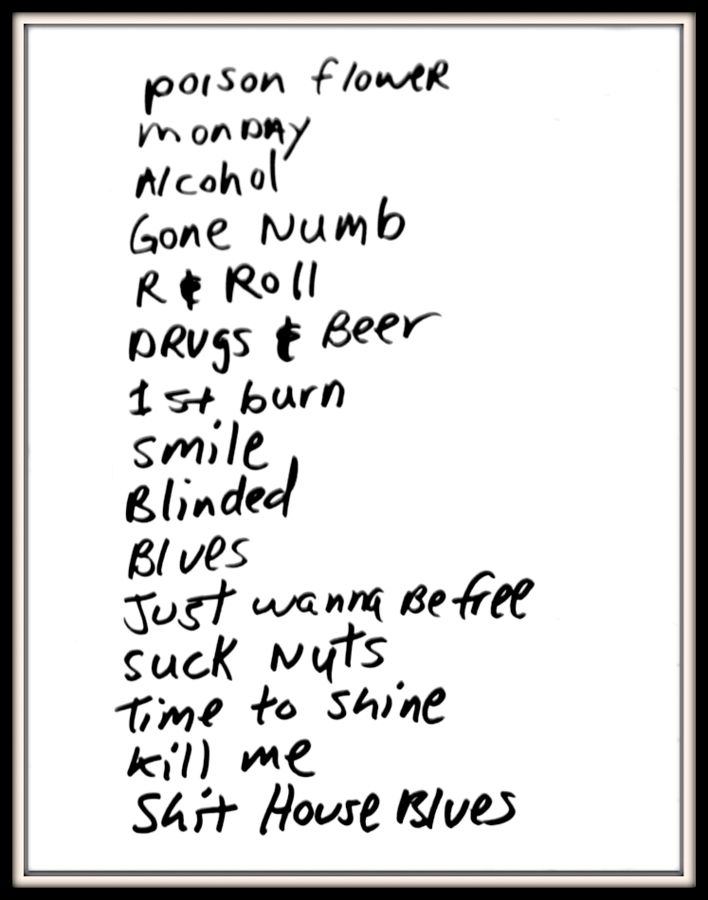 poison flowER
monDAY
Alcohol
Gone Numb
R & Roll
DRUgS & Beer
1st burn
smile
Blinded
Blues
Just wanna Be free
suck Nuts
Time to shine
kill me
Shit House Blues